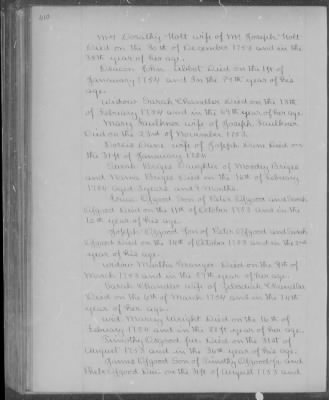 Mrs Dorothy Holt wife of Mr Joseph Holt
Died on the 30th of December 1753 and in the
38th year of her age.
Deacon John Abbot Died on the 1st of
January 1754 and In the 79th year of his
age.
Widow Sarah Chandler Died on the 13th
of February 1754 and in the year of her age.
Mary Faulkner wife of Joseph Faulkner
Died on the 23rd of November 1753.
wife of Joseph Died on
the 31st of January 1754
Sarah Bridges Daughter of Moody Bridges
and Died on the 16th of February
1754 aged 3 years and 9 Months.
Osgood Son of Peter Osgood and Sarah
Osgood Died on the 11th of October 1753 and in the
year of his age.
Joseph Osgood Son of Peter Osgood and Sarah
Osgood Died on the 14th of October 1753 and in the 2nd
year of his age.
widow Martha Granger Died on the 9th of
March 1753 and in the year of her age.
Sarah Chandler wife of Zebadiah Chandler
Died on the 6th of March 1754 and in the 74th
year of her age.
wid. Marcy Wright Died on the 16th of
February 1754 and in the year of her age.
Timothy Osgood jur. Died on the 31st of
August 1753 and in the 36th year of his age.
James Osgood Son of Timothy Osgood jr and
Phebe Osgood Died on the of August 1753 and